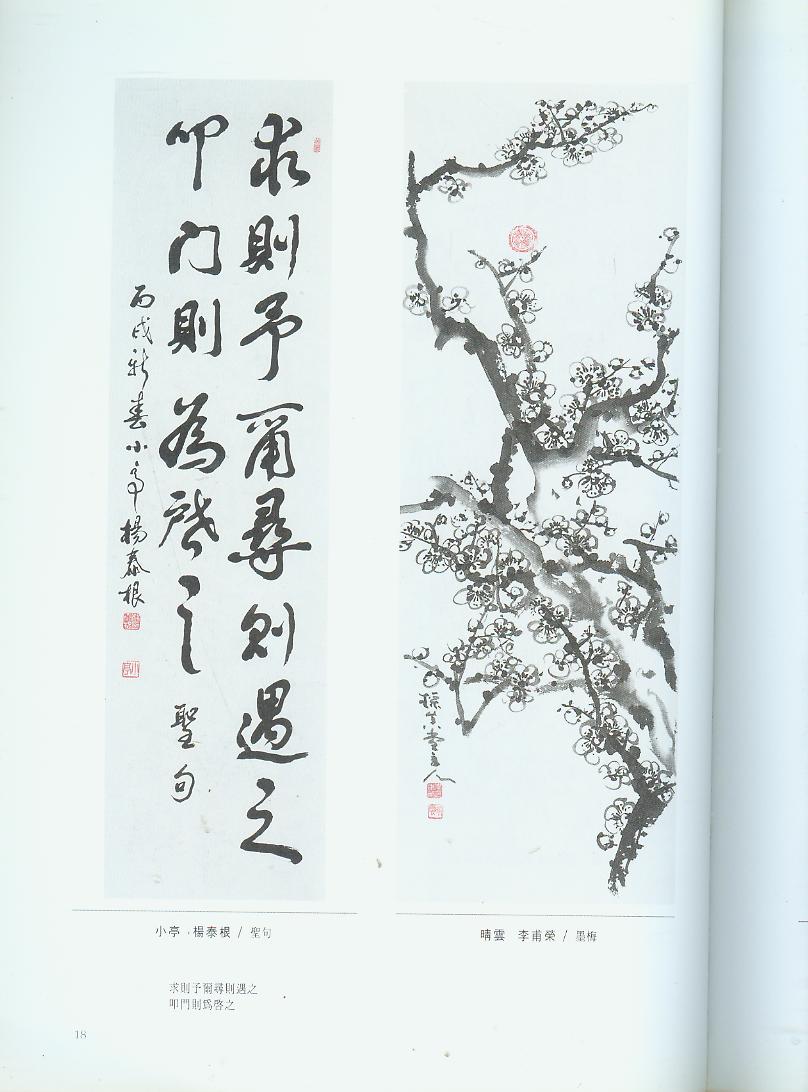 求則予爾尋則遇之
叩门則為啓之 聖句
丙戌新春小亭楊泰根
堂主人
小亭 楊泰根 / 聖句
晴雲 李甫榮 / 墨梅
求則予爾尋則遇之
叩門則爲啓之
18